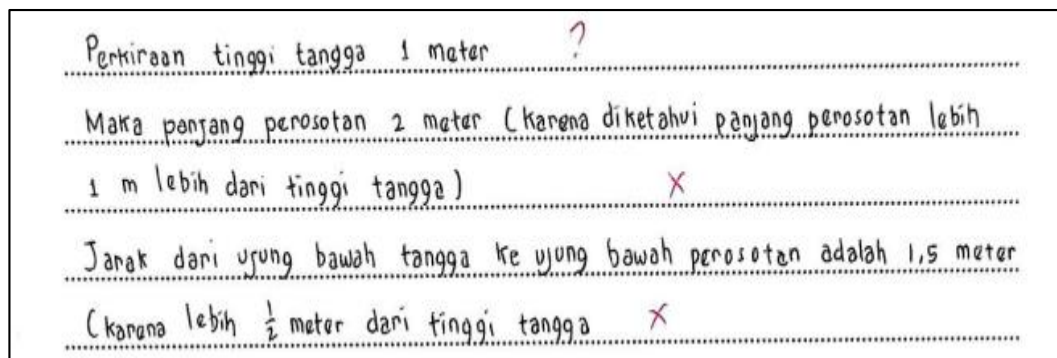 Perkiraan tinggi tangga 1 meter ?
Maka panjang perosotan 2 meter (karena diketahui panjang perosotan lebih
1 m lebih dari tinggi tangga) X
Jarak dari ujung bawah tangga ke ujung bawah perosotan adalah 1,5 meter
(karena lebih 1/2 meter dari tinggi tangga X